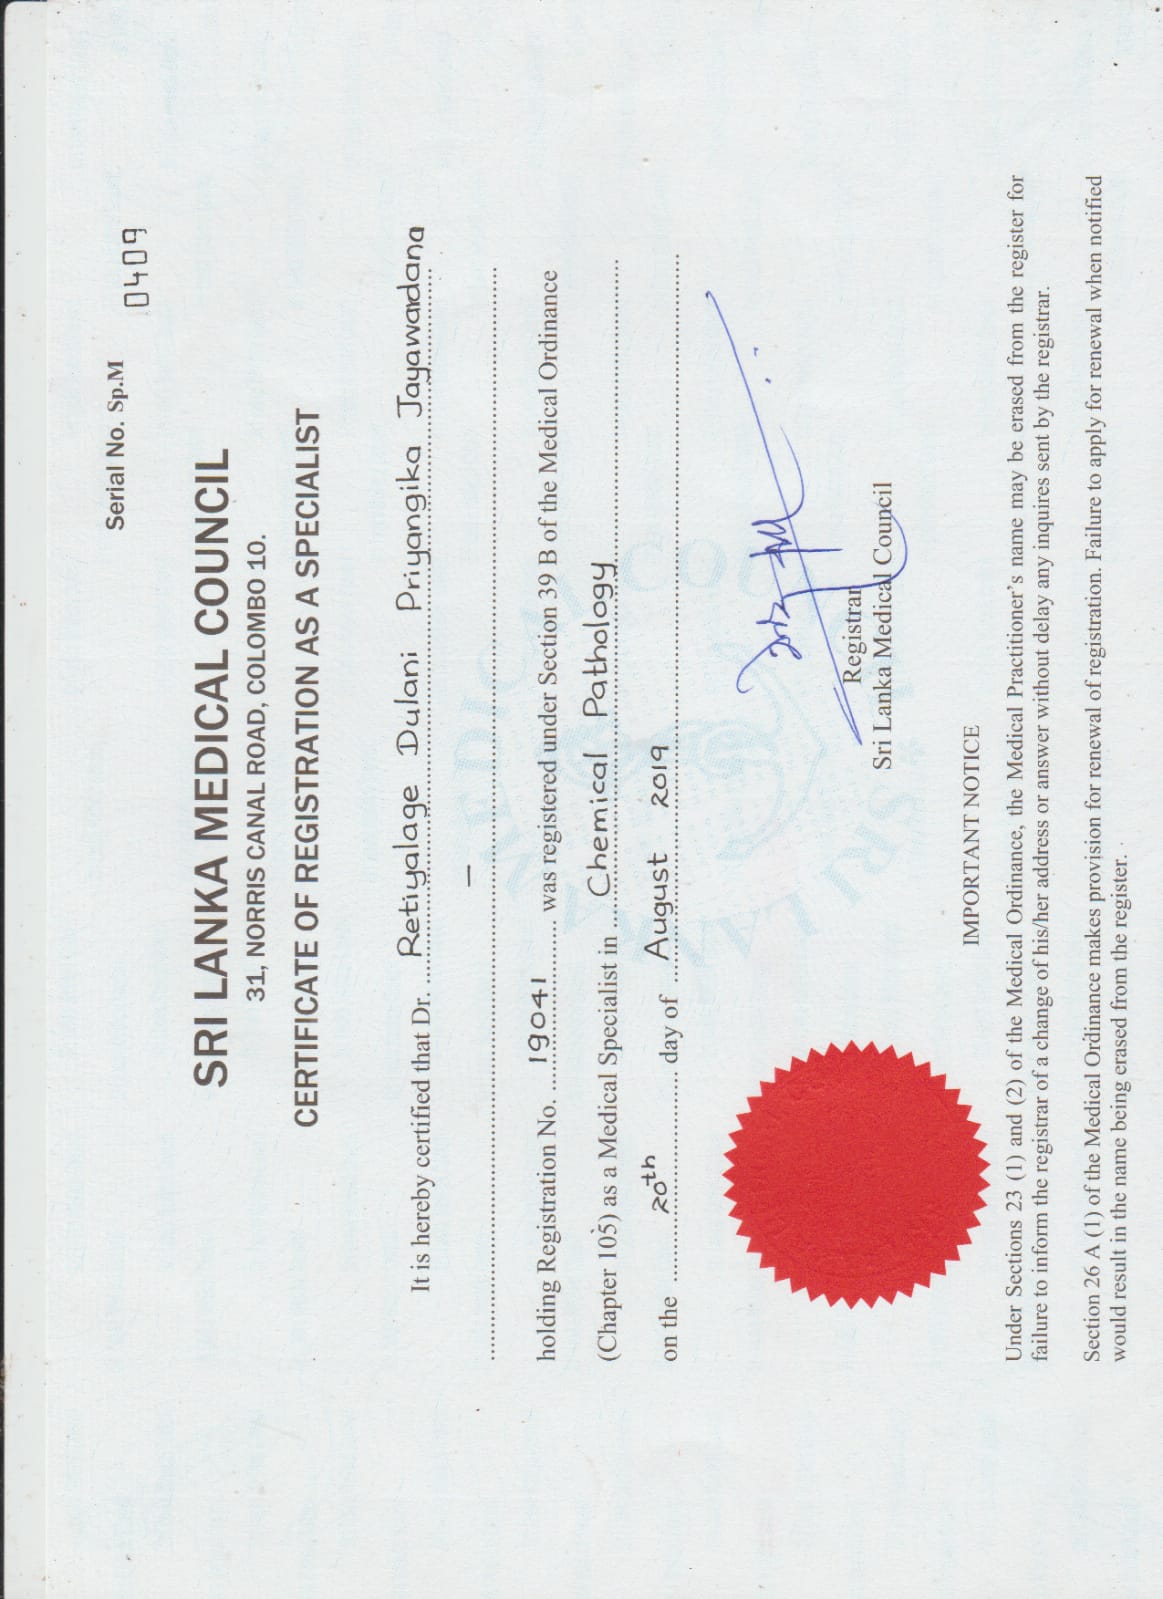 Serial No. Sp.M 0409
SRI LANKA MEDICAL COUNCIL
31, NORRIS CANAL ROAD, COLOMBO 10.
CERTIFICATE OF REGISTRATION AS A SPECIALIST
It is hereby certified that Dr. Retiyalage Dulani Priyangika Jayawardana
–
holding Registration No. 19041 was registered under Section 39 B of the Medical Ordinance
(Chapter 105) as a Medical Specialist in Chemical Pathology
on the 20th day of August 2019
Registrar
Sri Lanka Medical Council
SRI LANKA MEDICAL COUNCIL
IMPORTANT NOTICE
Under Sections 23 (1) and (2) of the Medical Ordinance, the Medical Practitioner's name may be erased from the register for
failure to inform the registrar of a change of his/her address or answer without delay any inquires sent by the registrar.
Section 26 A (1) of the Medical Ordinance makes provision for renewal of registration. Failure to apply for renewal when notified
would result in the name being erased from the register.